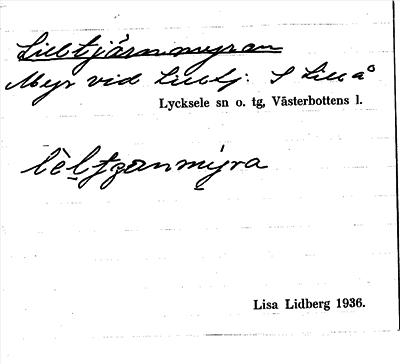 Lilltjärnmyran
Myr vid Lilltj. S Lillå
Lycksele sn o. tg, Västerbottens l.
Lisa Lidberg 1936.